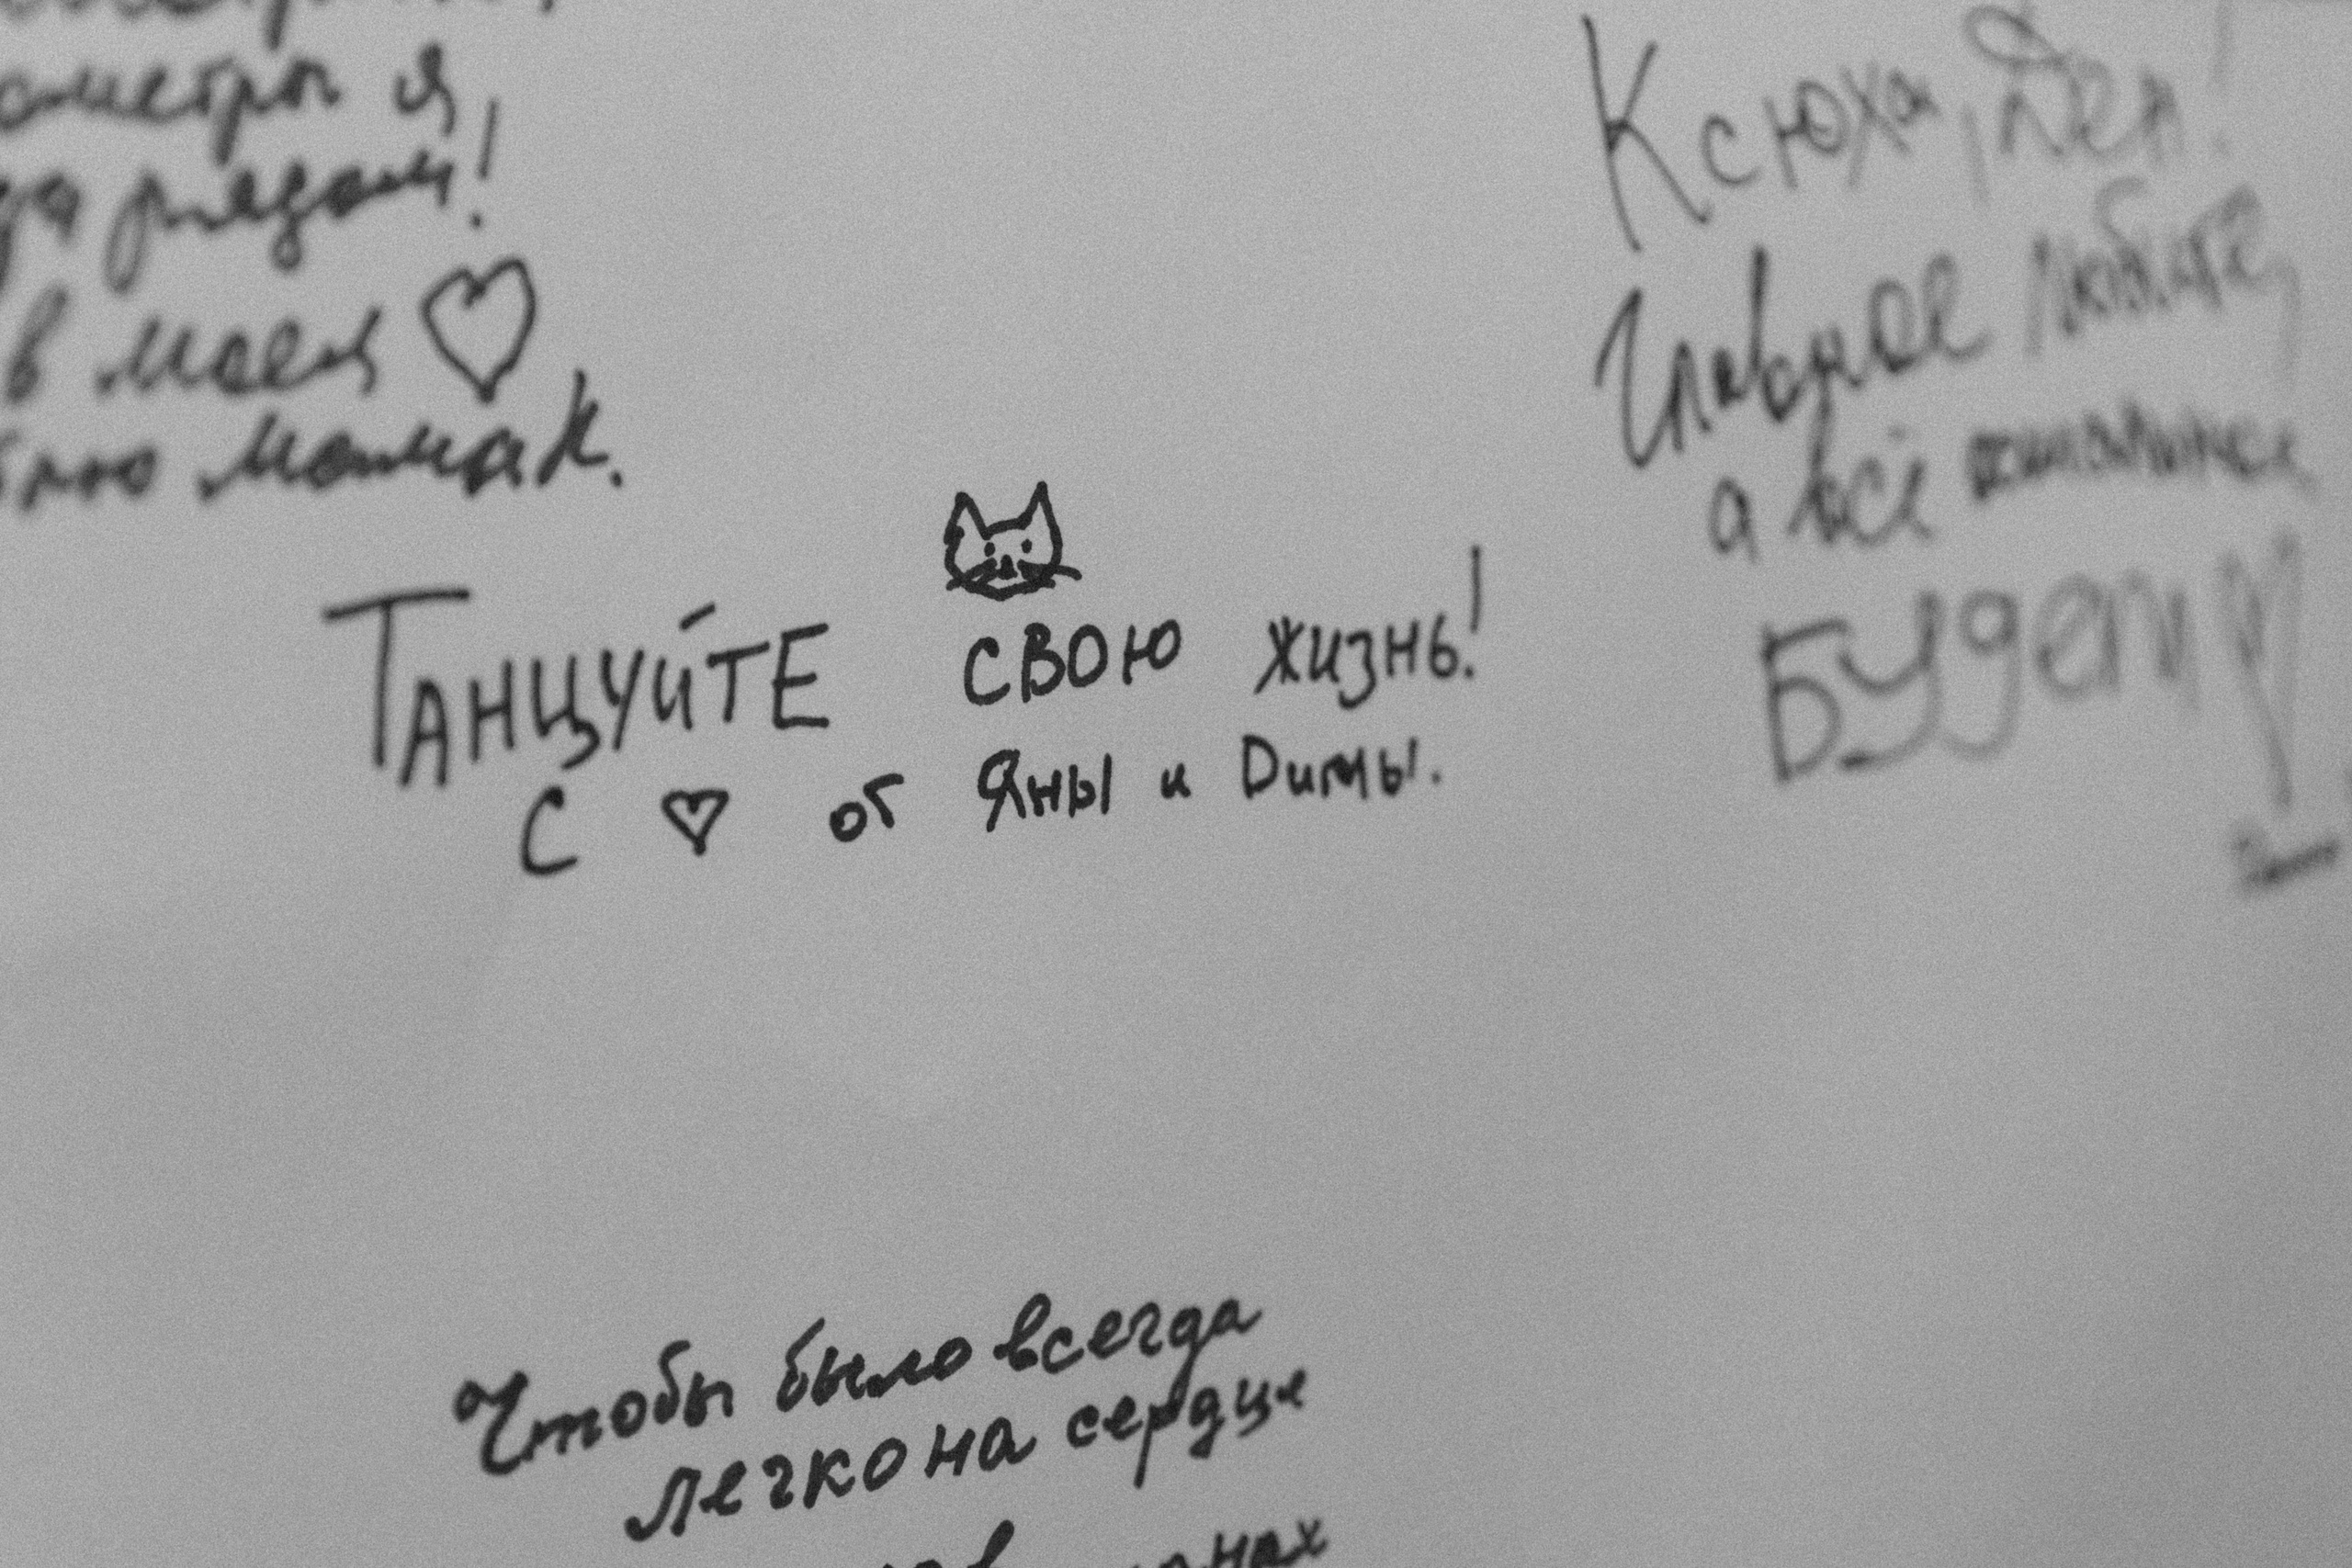 я
рядом!
в моем ♡
мамак.
Ксюха, Ден!
Главное любите,
а всё остальное
БУдет
ТАНЦУЙТЕ СВОЮ ЖИЗНЬ!
С ♡ от Яны и Димы.
Чтобы было всегда
легко на сердце